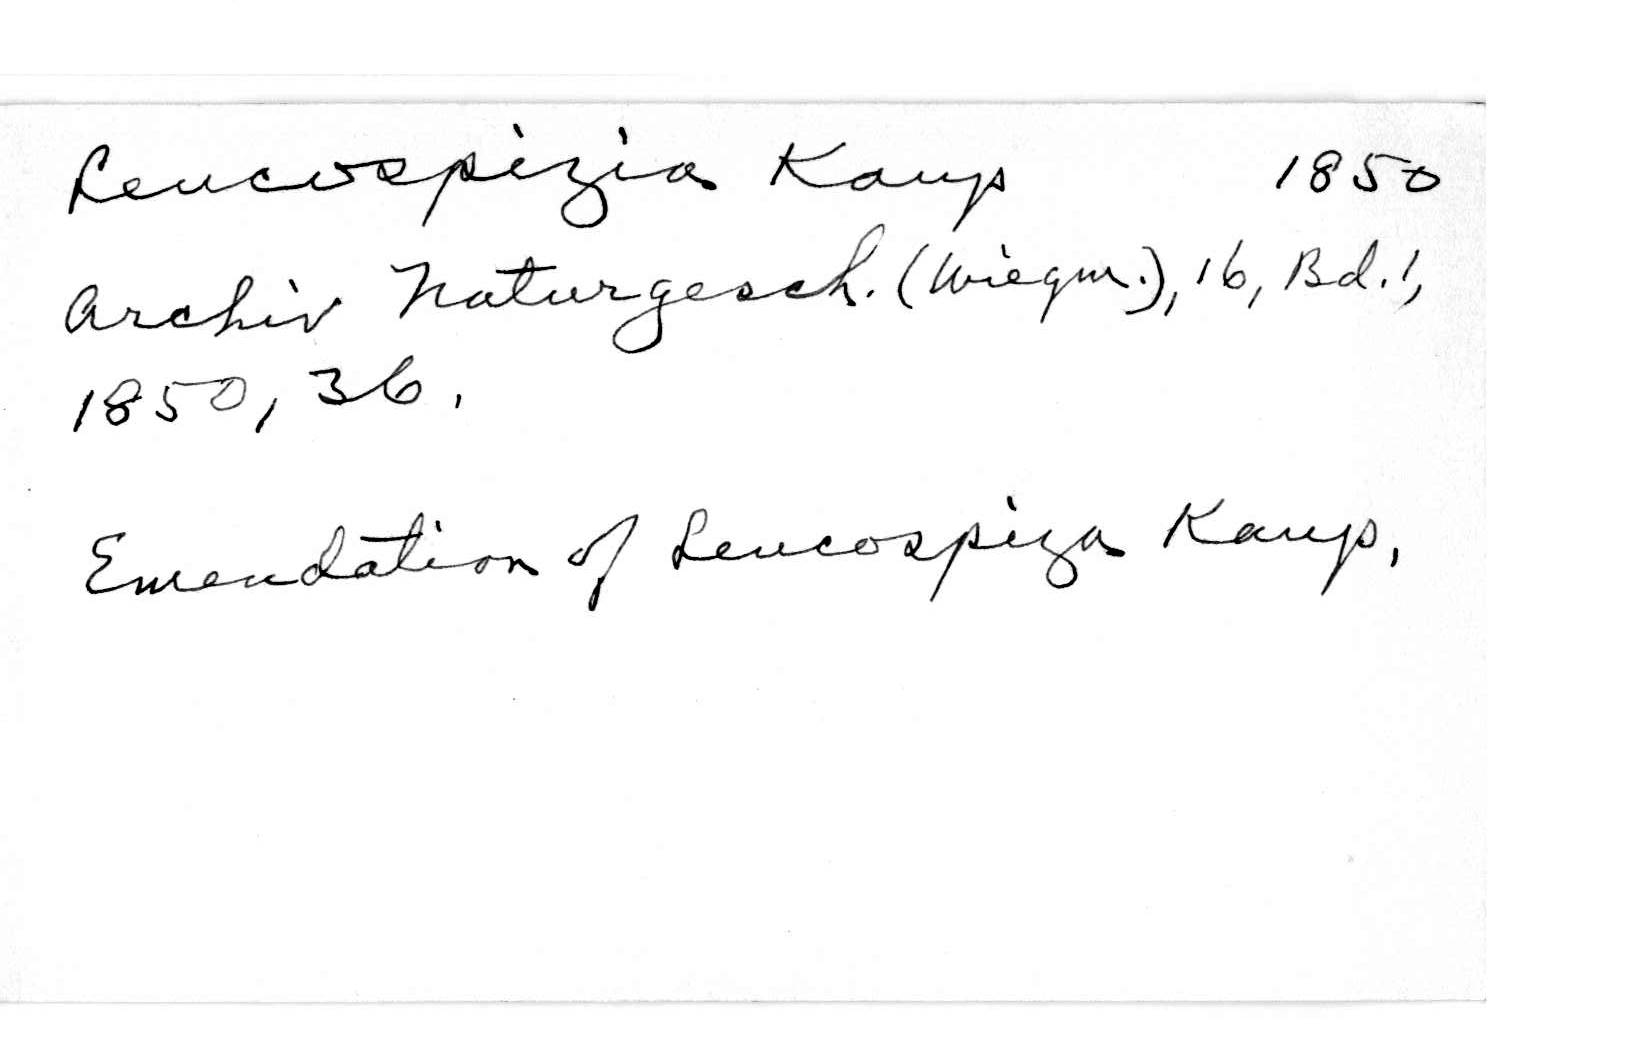 Leucospizia Kaup 1850
Archiv Naturgesch. (Wiegm.), 16, Bd. 1,
1850, 36.
Emendation of Leucospiza Kaup.